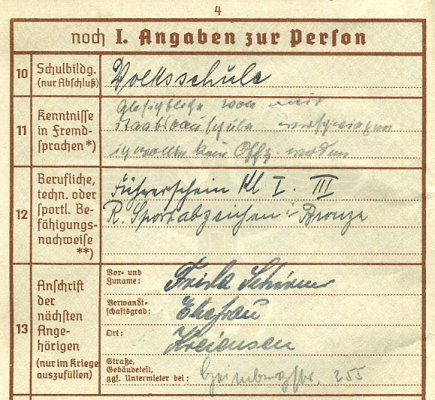 4
noch I. Angaben zur Person
10 Schulbildg. (nur Abschluß) Volksschule
11 Kenntnisse in Fremdsprachen*)
Staatsbauschule verschwiegen
12 Berufliche, techn. oder sportl. Befähigungsnachweise **)
Führerschein Kl I. III
R. Sportabzeichen i. Bronze
13 Anschrift der nächsten Angehörigen (nur im Kriege auszufüllen)
Vor- und Zuname: Frida
Verwandtschaftsgrad: Ehefrau
Ort: Kreiensen
Straße, Gebäudeteil, ggf. Untermieter bei: 255